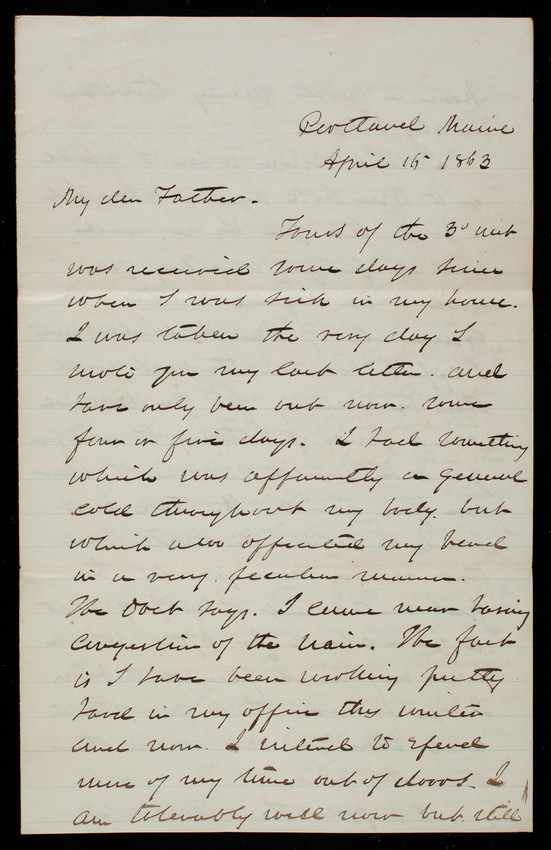 Portland Maine
April 15 1863
My dear Father.
Yours of the 3d inst
was received some days since
when I was sick in my house.
I was taken the very day I
wrote you my last letter. and
have only been out now some
four or five days. I had something
which was apparently a general
cold throughout my body. but
which also affected my head
in a very peculiar manner.
The Doct says. I came near having
congestion of the brain. The fact
is I have been working pretty
hard in my office this winter
and now I intend to spend
more of my time out of doors. I
am tolerably well now but still